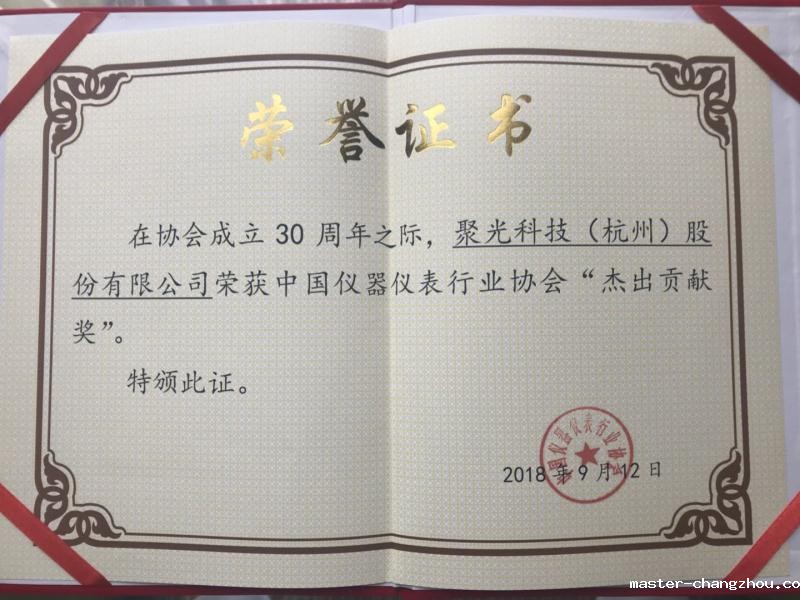 荣誉证书
在协会成立30周年之际，聚光科技（杭州）股
份有限公司荣获中国仪器仪表行业协会“杰出贡献
奖”。
特颁此证。
中国仪器仪表行业协会
2018年9月12日
master-changzhou.co